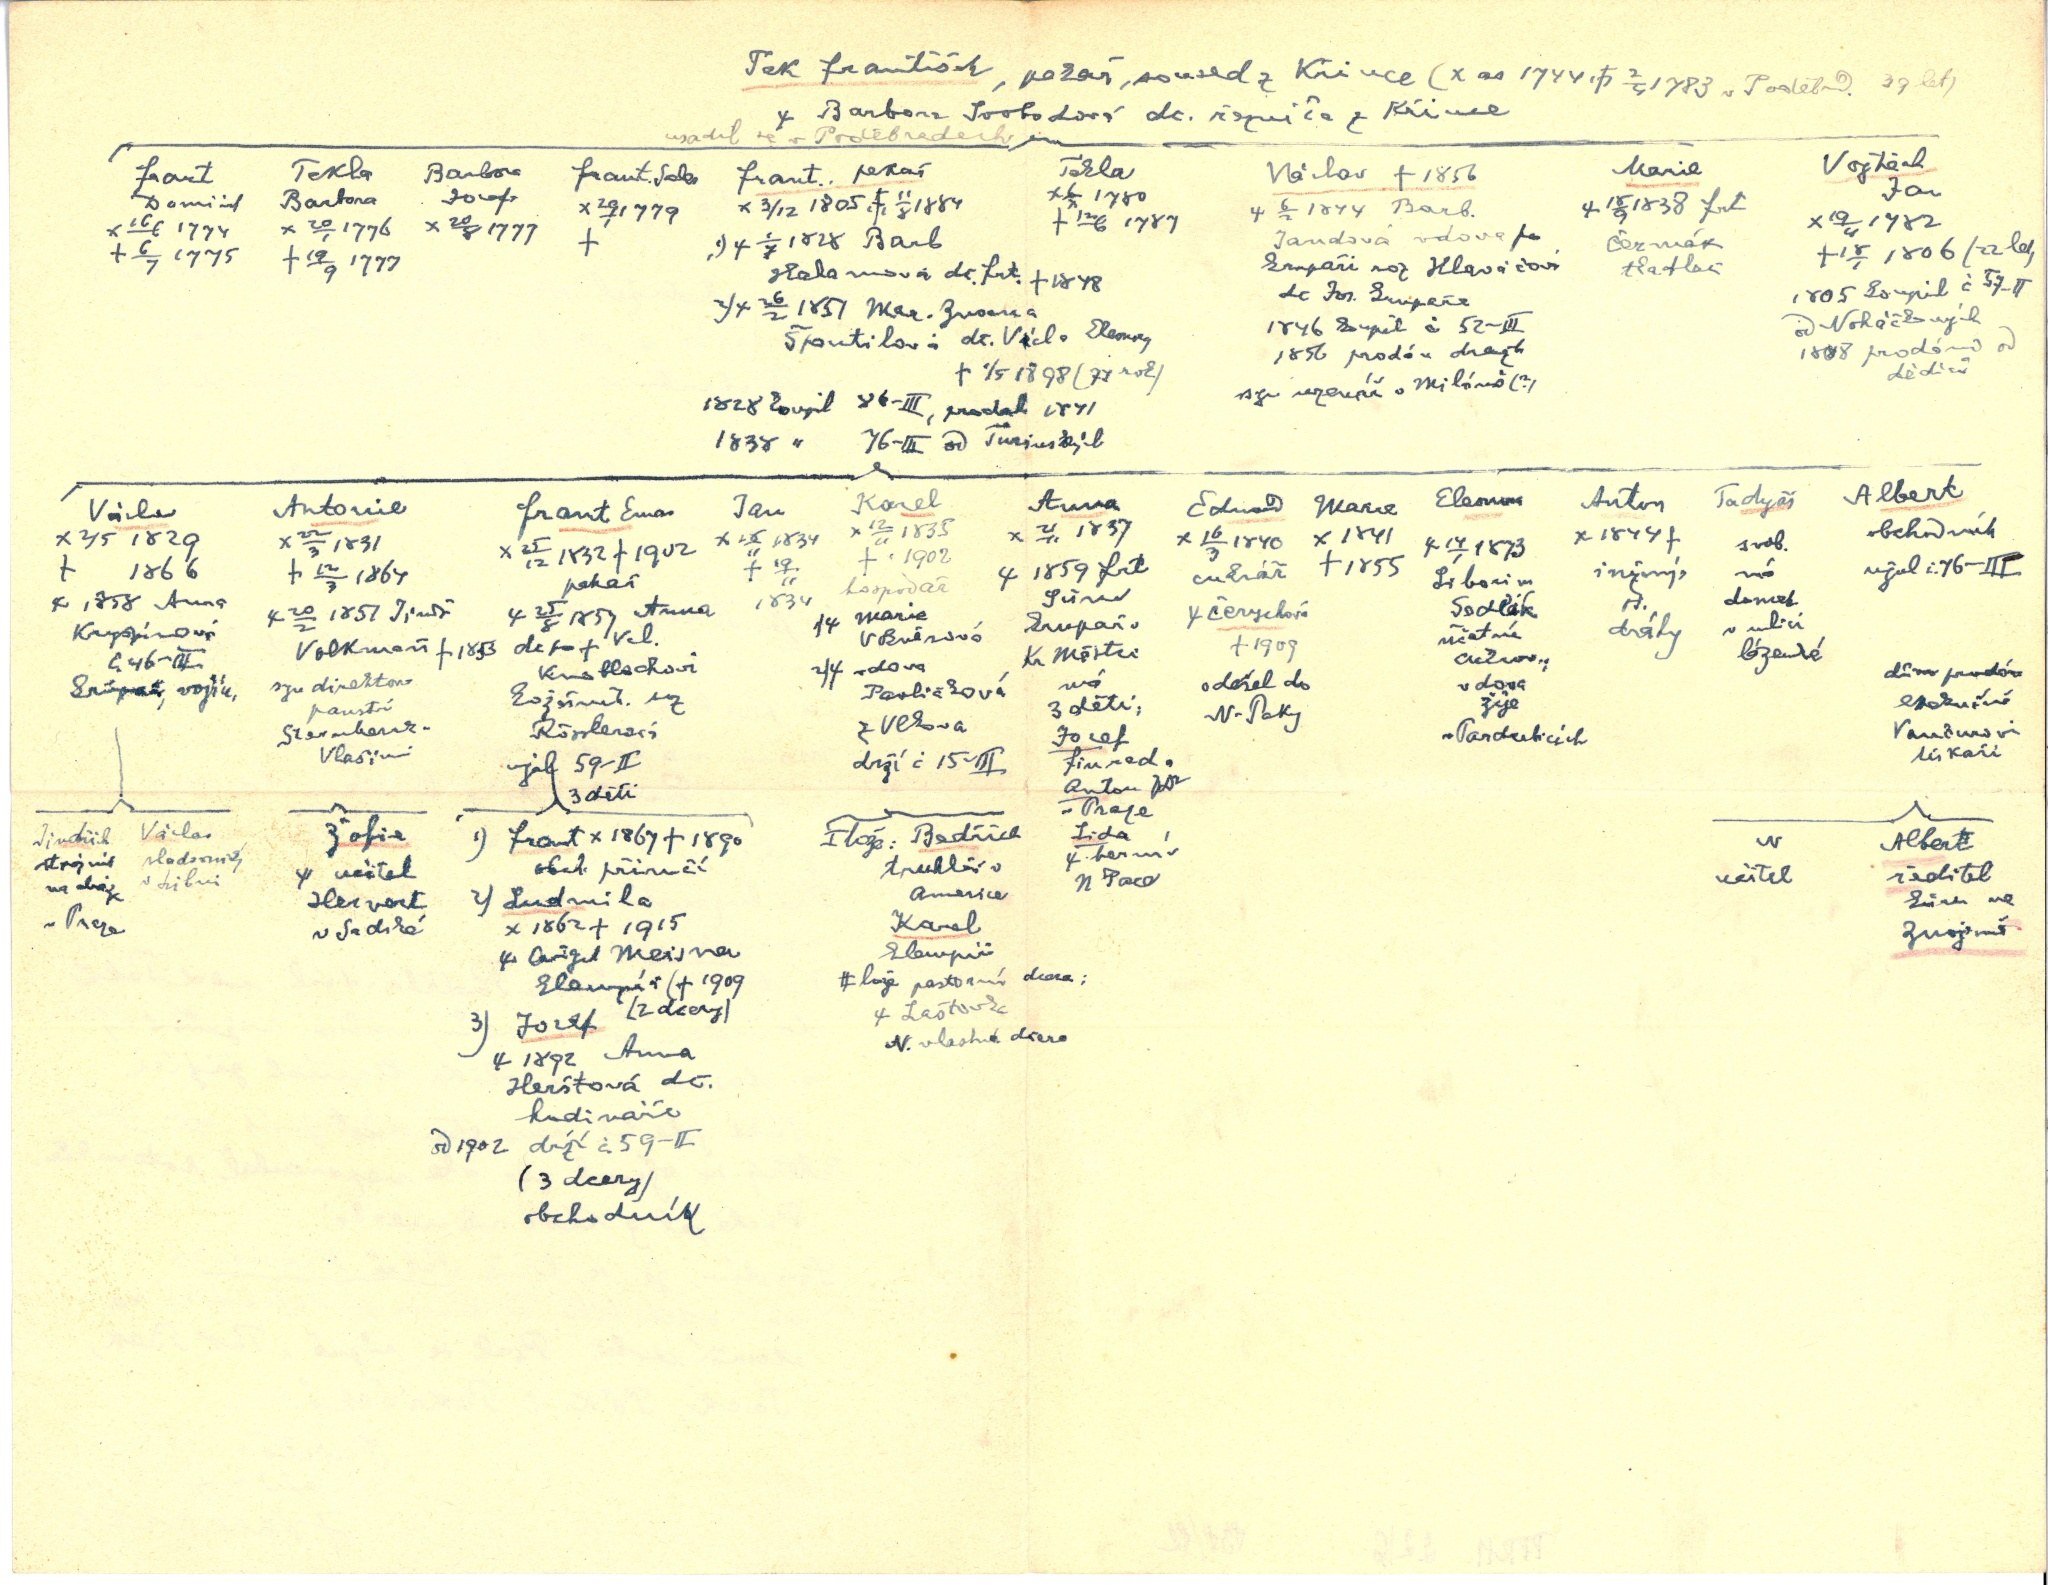 Tek František, pekař, soused z Křince (x as 1744 † 2/5 1783 v Poděbrad. 39 let)
4 Barbora Svobodová dc. řezníka z Křince
usadil se v Poděbradech
Frant
Dominik
x 16/6 1774
+ 6/7 1775
Tekla
Barbora
x 20/1 1776
+ 19/9 1777
Barbora
Josefa
x 20/8 1777
Frant. Sales
x 29/1 1779
+
Frant. pekař
x 3/12 1805 + 11/8 1884
1) 4 1828 Barb
dc. Frt. + 1848
2) 4 26/2 1851 Mar. Zuzana
Špontilová dc. Václ. Eleonory
+ 1/5 1898 (77 rok)
1828 koupil 86-III, prodal 1841
1838 " 76-III od Turinských
Tekla
x 1780
+ 12/6 1787
Václav + 1856
4 6/2 1844 Barb.
Jandová vdova po
krupaři roz Hlaváčová
dc Jos. krupaře
1846 koupil č 52-III
1856 prodán
v Miláně (?)
Marie
4 18/9 1838 Frt
Čermák
tkadlec
Vojtěch
Jan
x 19/4 1782
+ 18/1 1806 (22 let)
1805 koupil č 57-II
od Noháčkových
1808 prodáno od
dědiců
Václav
x 2/5 1829
+ 1866
4 1858 Anna
Kryšpínová
č. 46-III
krupař, vojín,
Antonie
x 22/3 1831
+ 12/3 1864
4 20/2 1851 Jindř
Volkmann + 1853
syn direktora
panství
Sternberk-
Vlašimi
Frant Eman
x 25/12 1832 + 1902
pekař
4 25/8 1857 Anna
dc po + Vcl.
Knoblochovi
kožišník. roz
Rösslerová
ujal 59-II
3 děti
Jan
x 18/11 1834
+ 19/11
1834
Karel
x 12/11 1835
+ 1902
hospodář
1) 4 Marie
Vobůrová
2) 4 vdova
Pavlíčková
z Vlkova
drží č 15-III
Anna
x 21/11 1837
4 1859 Frt
Šírův
krupař v
Kr Městci
má
3 děti:
Josef
fin rada
Anton
v Praze
Lida
4 berní v
N Pace
Eduard
x 16/3 1840
cukrář
4 Čerychová
+ 1909
odešel do
N-Paky
Marie
x 1841
+ 1855
Eleonora
4 14/1 1873
Liborin
Sedlák
účetní
cukrov.;
vdova
žije
v Pardubicích
Anton
x 1844 +
inženýr
st.
dráhy
Tadyáš
svob.
má
domek
v ulici
lázeňské
Albert
obchodník
ujal č. 76-III
dům prodán
exekučně
Vančurovi
lékaři
Jindřich
strojník
na dráze
v Praze
Václav
sladovnický
v Libni
Žofie
4 učitel
Hervert
v Sadské
1) Frant x 1867 + 1890
obch. příručí
2) Ludmila
x 1862 + 1915
4 Meisner
klempíř (+ 1909
(2 dcery)
3) Josef
4 1892 Anna
Herštová dc.
hodináře
od 1902 drží č. 59-II
(3 dcery)
obchodník
I lože: Bedřich
truhlář v
Americe
Karel
klempíř
II lože pastorní dcera:
4 Laštovk
N. vlastní dcera
N
učitel
Albert
ředitel
kůru ve
Znojmě